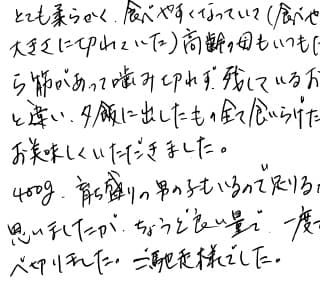 とても柔らかく、食べやすくなっていて(食べや
大きさに切れていた)高齢の母もいつも
ら筋があって噛み切れず、残しているお
と違い、夕飯に出したもの全て食いらげた
お美味しくいただきました。
400g、育ち盛りの男の子もいるので足りる
思いましたが、ちょうど良い量で、一度
べ切りました。ご馳走様でした。